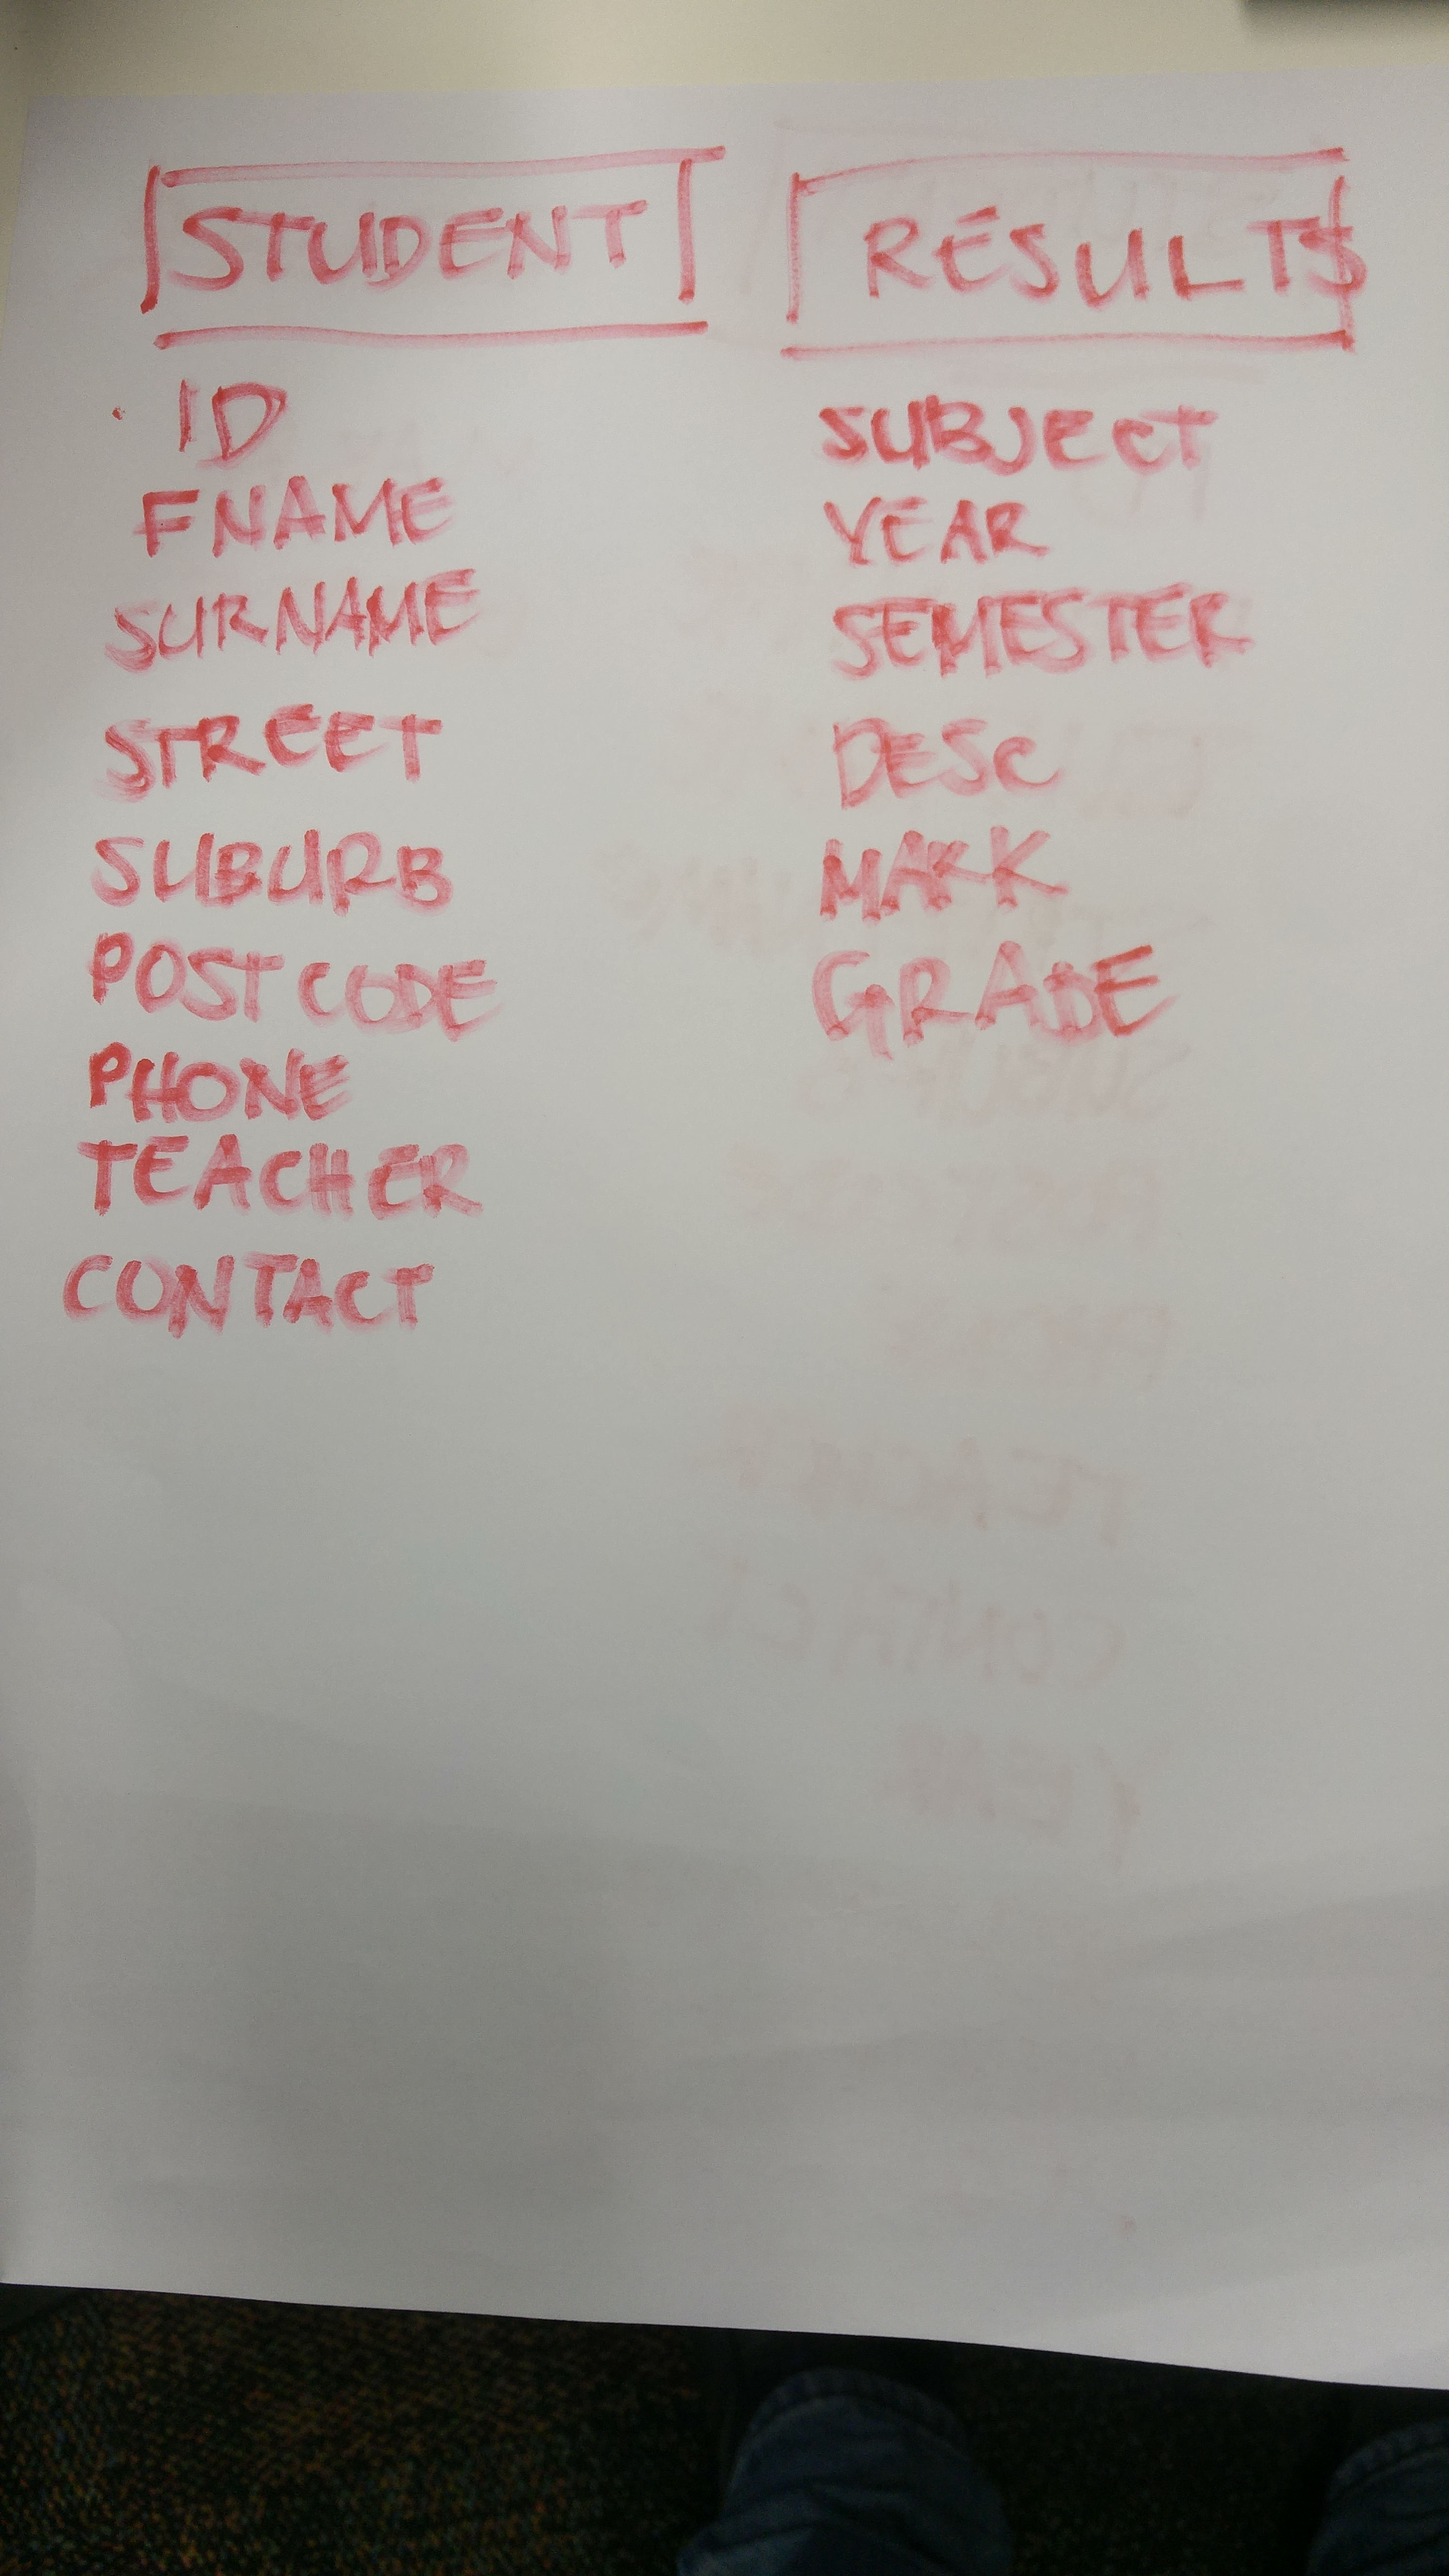 STUDENT
ID
FNAME
SURNAME
STREET
SUBURB
POSTCODE
PHONE
TEACHER
CONTACT
RESULTS
SUBJECT
YEAR
SEMESTER
DESC
MARK
GRADE